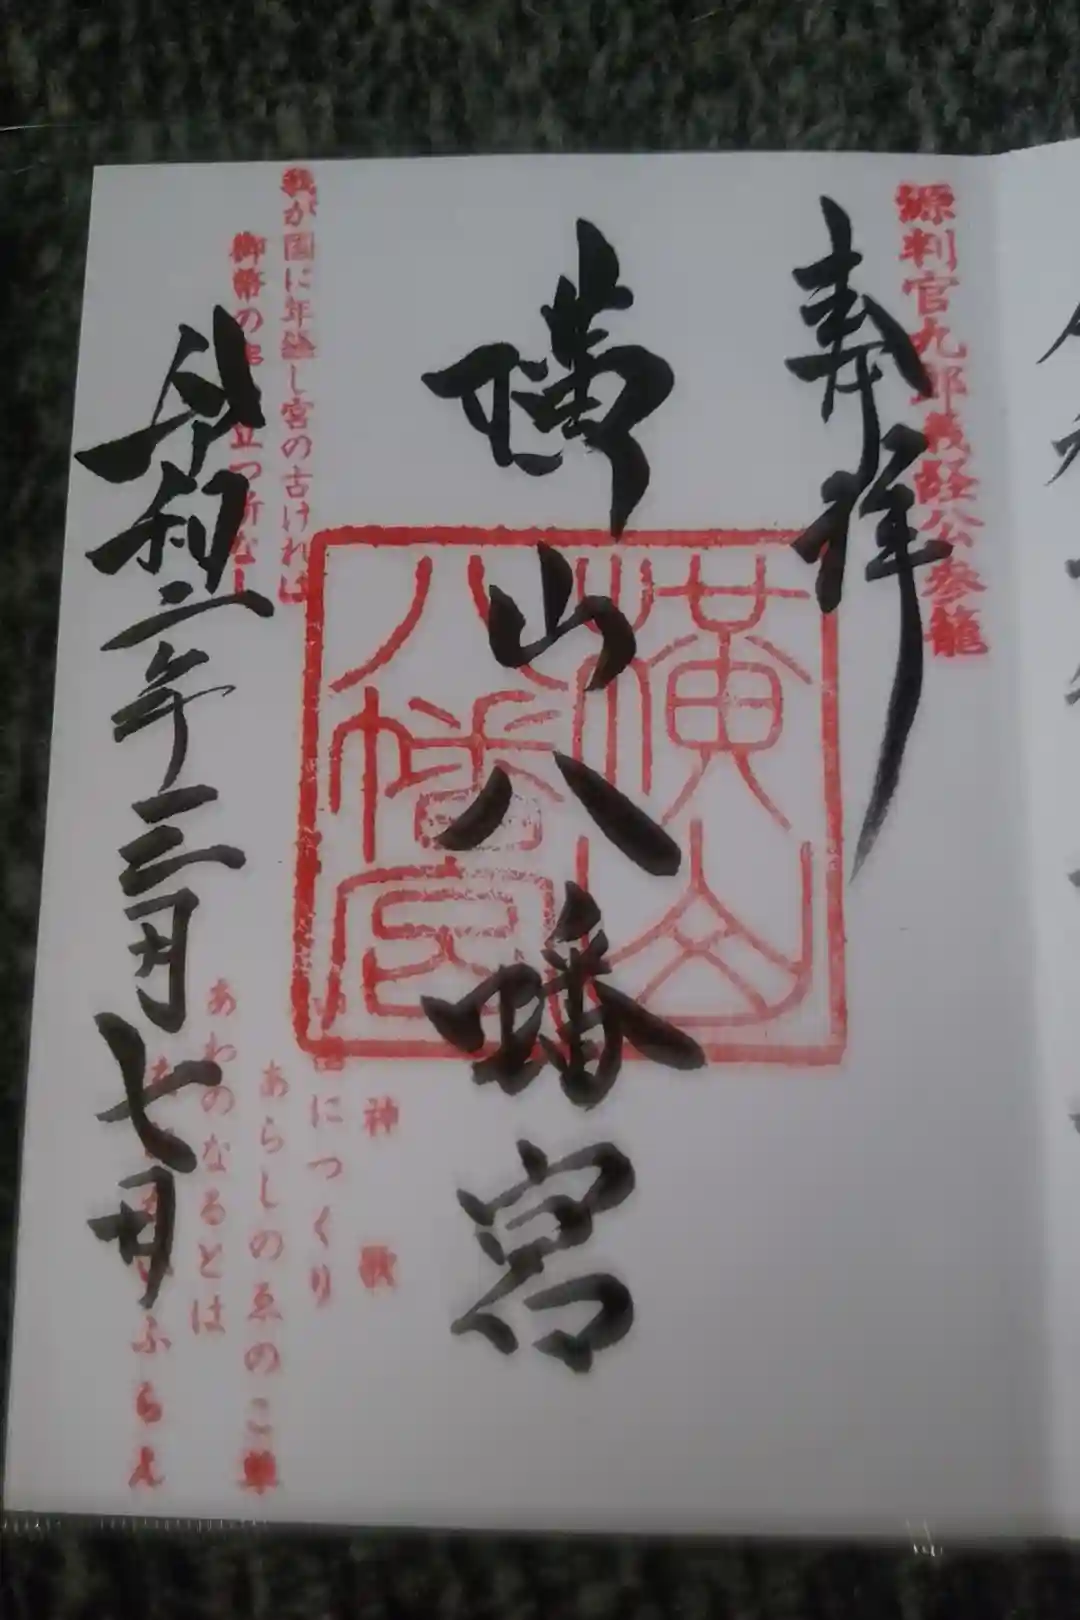 源判官九郎義経公参籠
奉拝
横山八幡宮
横山
八幡宮
我が国に年経し宮の古ければ
御幣の 立つ所なし
神歌
につくり
あらしのゑのこ草
あわのなるとは
ふらん
令和二年三月七日